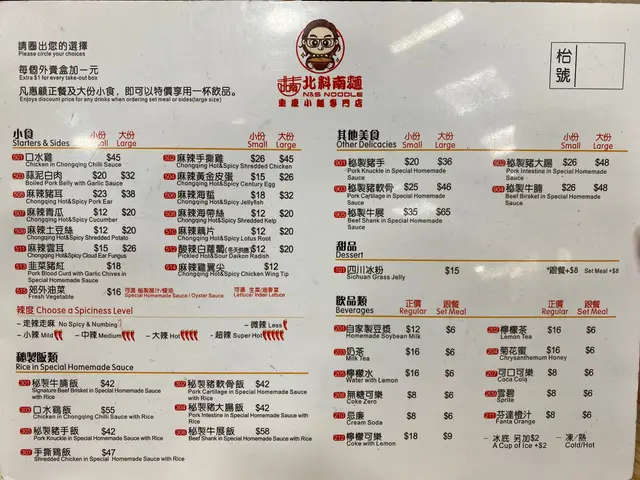 請圈出您的選擇
Please circle your choices
每個外賣盒加一元
Extra $1 for every take-out box
凡惠顧正餐及大份小食，即可以特價享用一杯飲品。
Enjoys discount price for any drinks when ordering set meal or sides(large size)
北斜南麵
N&S NOODLE
重慶小麵專門店
枱號
小食 小份 大份
Starters & Sides Small Large
501 口水雞 $45
Chicken in Chongqing Chilli Sauce
503 蒜泥白肉 $20 $32
Boiled Pork Belly with Garlic Sauce
505 麻辣豬耳 $23 $38
Chongqing Hot&Spicy Pork Ear
507 麻辣青瓜 $12 $20
Chongqing Hot&Spicy Cucumber
509 麻辣土豆絲 $12 $20
Chongqing Hot&Spicy Shredded Potato
511 麻辣雲耳 $15 $26
Chongqing Hot&Spicy Cloud Ear Fungus
513 韮菜豬紅 $18
Pork Blood Curd with Garlic Chives in
Special Homemade Sauce
515 郊外油菜 $16
Fresh Vegetable
Special Homemade Sauce / Oyster Sauce
Lettuce/ Indian Lettuce
小份 大份
Small Large
502 麻辣手撕雞 $26 $45
Chongqing Hot&Spicy Shredded Chicken
504 麻辣黃金皮蛋 $15 $26
Chongqing Hot&Spicy Century Egg
506 麻辣海蜇 $18 $32
Chongqing Hot&Spicy Jellyfish
508 麻辣海帶絲 $12 $20
Chongqing Hot&Spicy Shredded Kelp
510 麻辣藕片 $12 $20
Chongqing Hot&Spicy Lotus Root
512 酸辣白蘿蔔(冬天供應) $12 $20
Pickled Hot&Sour Daikon Radish
514 麻辣雞翼尖 $12
Chongqing Hot&Spicy Chicken Wing Tip
辣度 Choose a Spiciness Level
- 走辣走麻 No Spicy & Numbing
- 微辣 Less
- 小辣 Mild
- 中辣 Medium
- 大辣 Hot
- 超辣 Super Hot
秘製飯類
Rice in Special Homemade Sauce
301 秘製牛腩飯 $42
Signature Beef Brisket in Special Homemade
Sauce with Rice
303 口水鷄飯 $55
Chicken in Chongqing Chilli Sauce with Rice
305 秘製豬手飯 $42
Pork Knuckle in Special Homemade Sauce with Rice
307 手撕鷄飯 $47
Shredded Chicken in Special Homemade Sauce with Rice
302 秘製豬軟骨飯 $42
Pork Cartilage in Special Homemade
Sauce with Rice
304 秘製豬大腸飯 $42
Pork Intestine in Special Homemade Sauce
with Rice
306 秘製牛展飯 $58
Beef Shank in Special Homemade Sauce with Rice
其他美食 小份 大份
Other Delicacies Small Large
901 秘製豬手 $20 $36
Pork Knuckle in Special Homemade
Sauce
903 秘製豬軟骨 $25 $46
Pork Cartilage in Special Homemade
Sauce
905 秘製牛展 $35 $65
Beef Shank in Special Homemade
Sauce
小份 大份
Small Large
902 秘製豬大腸 $26 $48
Pork Intestine in Special Homemade
Sauce
904 秘製牛腩 $26 $48
Beef Birsket in Special Homemade
Sauce
甜品
Dessert
101 四川冰粉 $15 *跟餐+$8 Set Meal +$8
Sichuan Grass Jelly
飲品類 正價 跟餐
Beverages Regular Set Meal
201 自家製豆漿 $12 $6
Homemade Soybean Milk
203 奶茶 $16 $6
Milk Tea
205 檸檬水 $16 $6
Water with Lemon
208 無糖可樂 $8 $6
Coke Zero
210 忌廉 $8 $6
Cream Soda
212 檸檬可樂 $18 $9
Coke with Lemon
正價 跟餐
Regular Set Meal
202 檸檬茶 $16 $6
Lemon Tea
204 菊花蜜 $16 $6
Chrysanthemum Honey
207 可口可樂 $8 $6
Coca Cola
209 雪碧 $8 $6
Sprite
211 芬達橙汁 $8 $6
Fanta Orange
- 冰底 另加$2
A Cup of Ice +$2
- 凍/熱
Cold/Hot